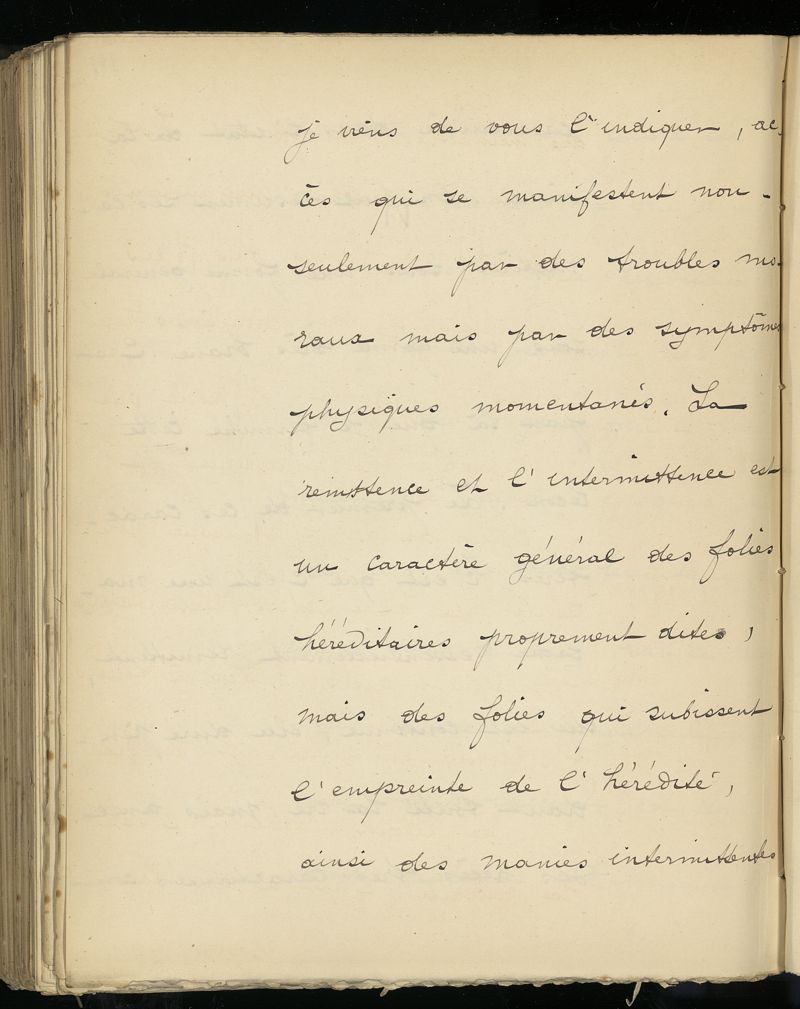 je viens de vous l'indiquer, ac-
cès qui se manifestent non-
seulement par des troubles mo-
raux mais par des symptômes
physiques momentanés. La
remittence et l'intermittence est
un caractère général des folies
héréditaires proprement dites,
mais des folies qui subissent
l'empreinte de l'hérédité,
ainsi des manies intermittentes